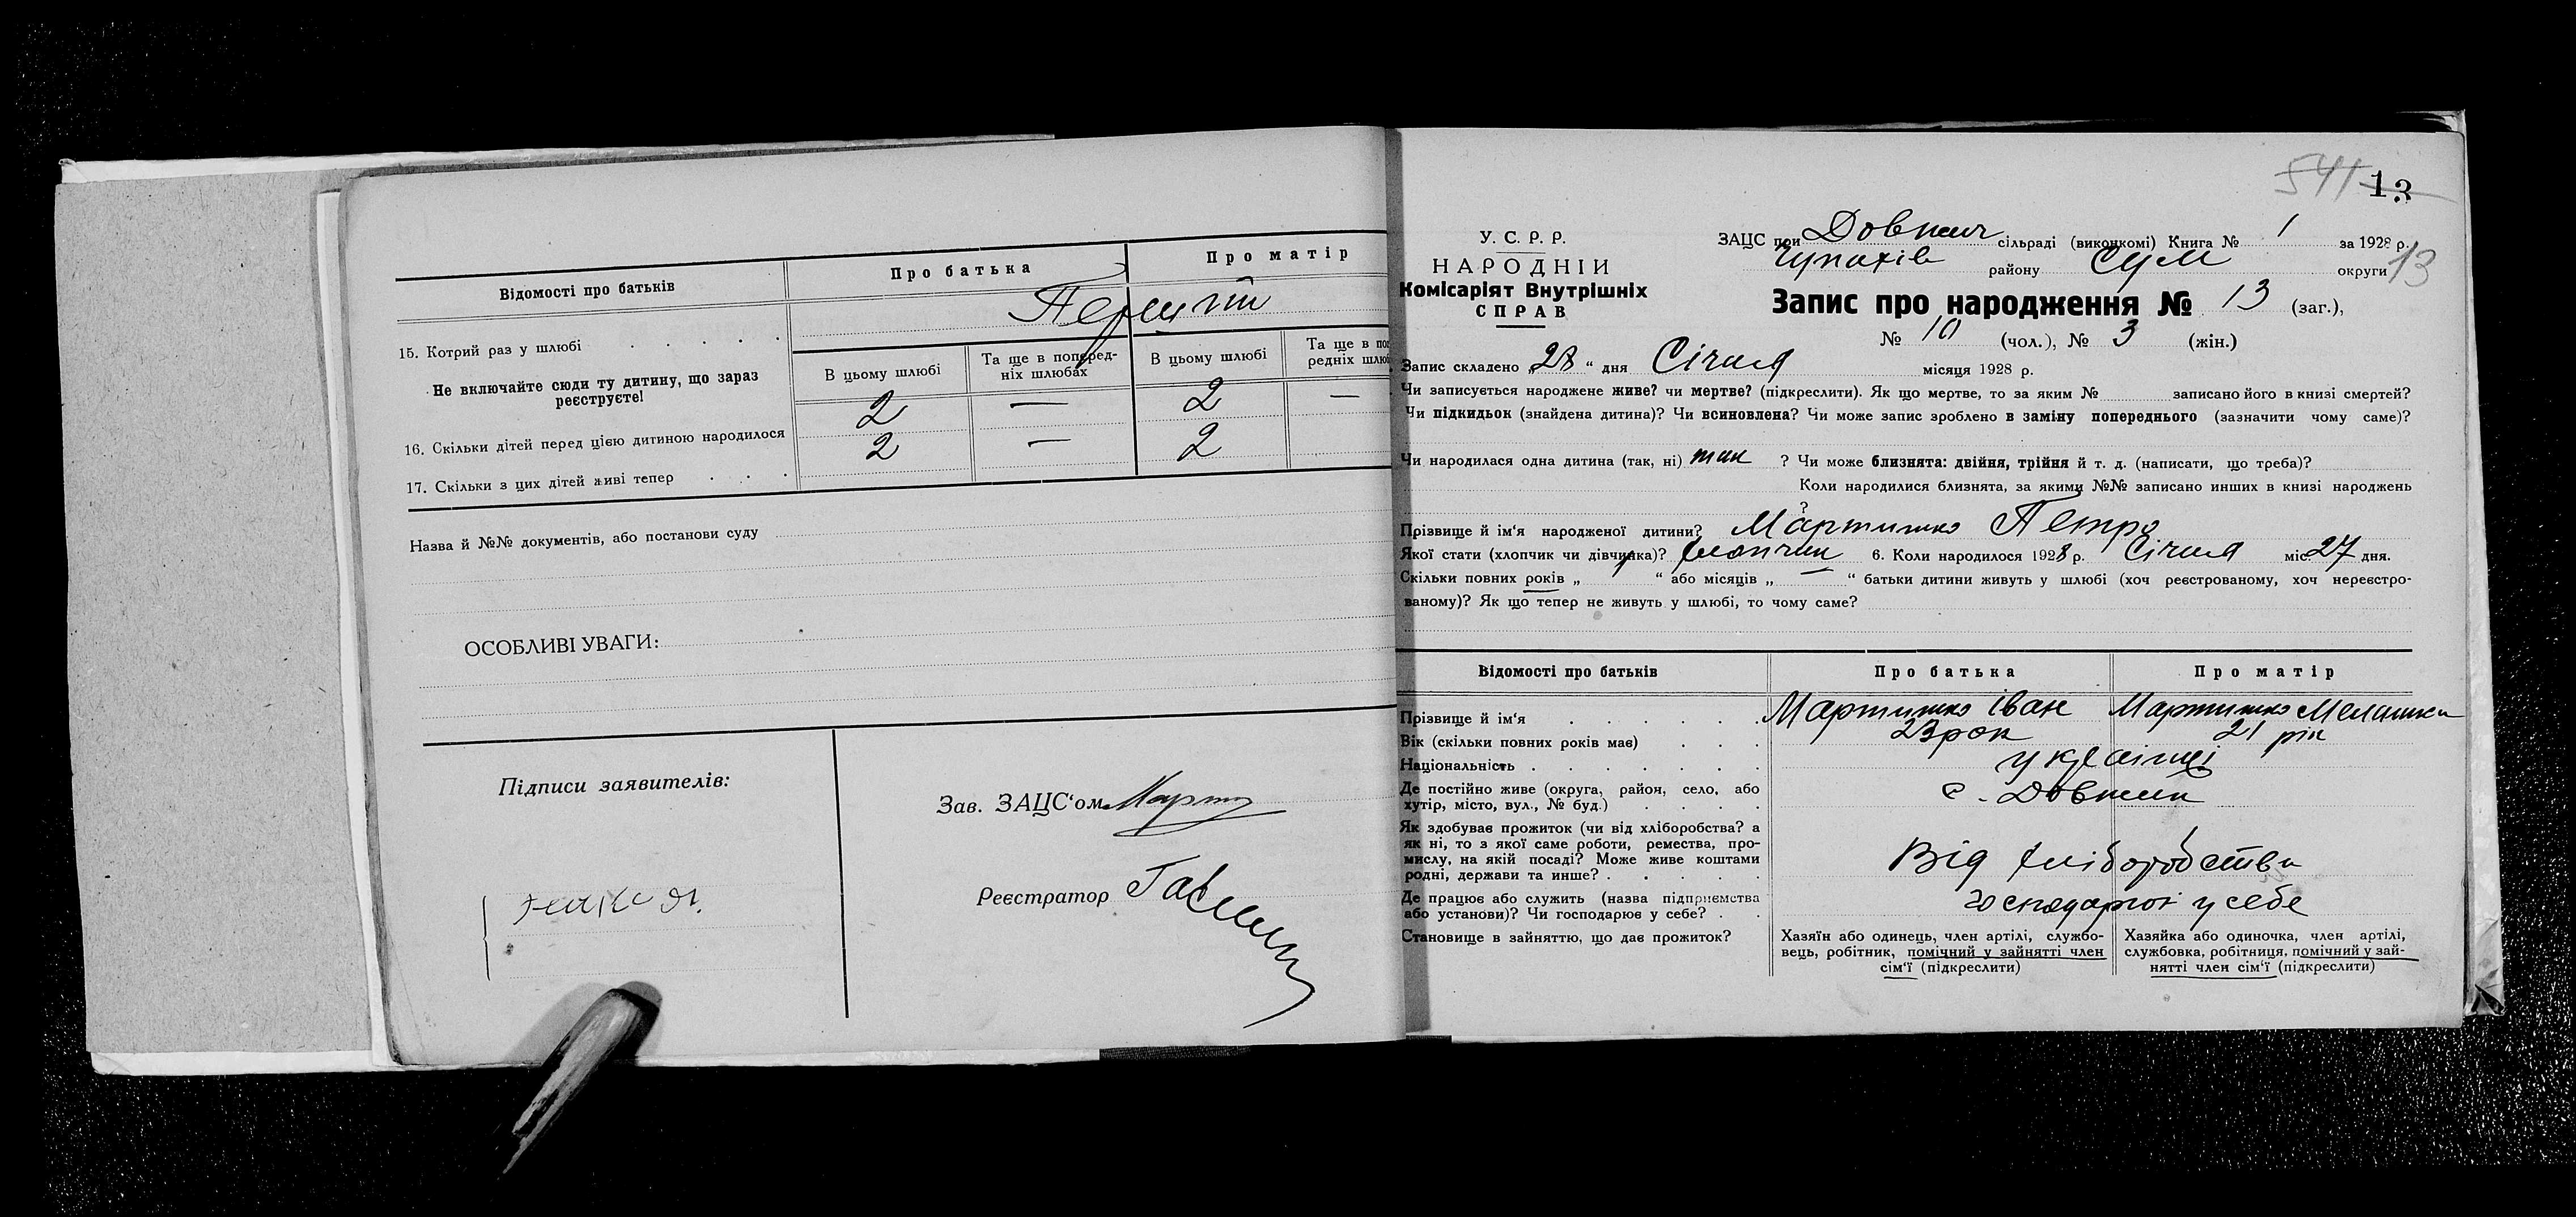 Відомості про батьків
Про батька
Про матір
15. Котрий раз у шлюбі
Перший
Не включайте сюди ту дитину, що зараз
реєструєте!
В цьому шлюбі
Та ще в поперед-
ніх шлюбах
В цьому шлюбі
Та ще в по
редніх шлю
16. Скільки дітей перед цією дитиною народилося
2 — 2 —
17. Скільки з цих дітей живі тепер
2 — 2
Назва й №№ документів, або постанови суду
ОСОБЛИВІ УВАГИ:
Підписи заявителів:
Зав. ЗАЦС‘ом
Реєстратор
541
13
У. С. Р. Р.
НАРОДНІЙ
Комісаріят Внутрішніх
СПРАВ
ЗАЦС при Довжич сільраді (виконкомі) Книга № 1 за 1928 р.
Чупахів району Сум округи 13
Запис про народження № 13 (заг.),
№ 10 (чол.), № 3 (жін.)
Запис складено „28“ дня Січня місяця 1928 р.
Чи записується народжене живе? чи мертве? (підкреслити). Як що мертве, то за яким № записано його в книзі смертей?
Чи підкидьок (знайдена дитина)? Чи всиновлена? Чи може запис зроблено в заміну попереднього (зазначити чому саме)?
Чи народилася одна дитина (так, ні) так ? Чи може близнята: двійня, трійня й т. д. (написати, що треба)?
Коли народилися близнята, за якими №№ записано инших в книзі народжень
?
Прізвище й ім‘я народженої дитини? Мартишко Петро
Якої стати (хлопчик чи дівчинка)? хлопчик 6. Коли народилося 1928 р. Січня міс. 27 дня.
Скільки повних років „ “ або місяців „ — “ батьки дитини живуть у шлюбі (хоч реєстрованому, хоч нереєстро-
ваному)? Як що тепер не живуть у шлюбі, то чому саме?
Відомості про батьків
Про батька
Про матір
Прізвище й ім‘я
Мартишко Іван
Мартишко Мелашка
Вік (скільки повних років має)
23 рок
21 рік
Національність
українці
Де постійно живе (округа, район, село, або
хутір, місто, вул., № буд.)
с. Довжик
Як здобуває прожиток (чи від хліборобства? а
як ні, то з якої саме роботи, ремества, про-
мислу, на якій посаді? Може живе коштами
родні, держави та инше?
Від хліборобства
Де працює або служить (назва підприємства
або установи)? Чи господарює у себе?
господарює у себе
Становище в зайняттю, що дає прожиток?
Хазяїн або одинець, член артілі, службо-
вець, робітник, помічний у зайнятті член
сім‘ї (підкреслити)
Хазяйка або одиночка, член артілі,
службовка, робітниця, помічний у зай-
нятті член сім‘ї (підкреслити)